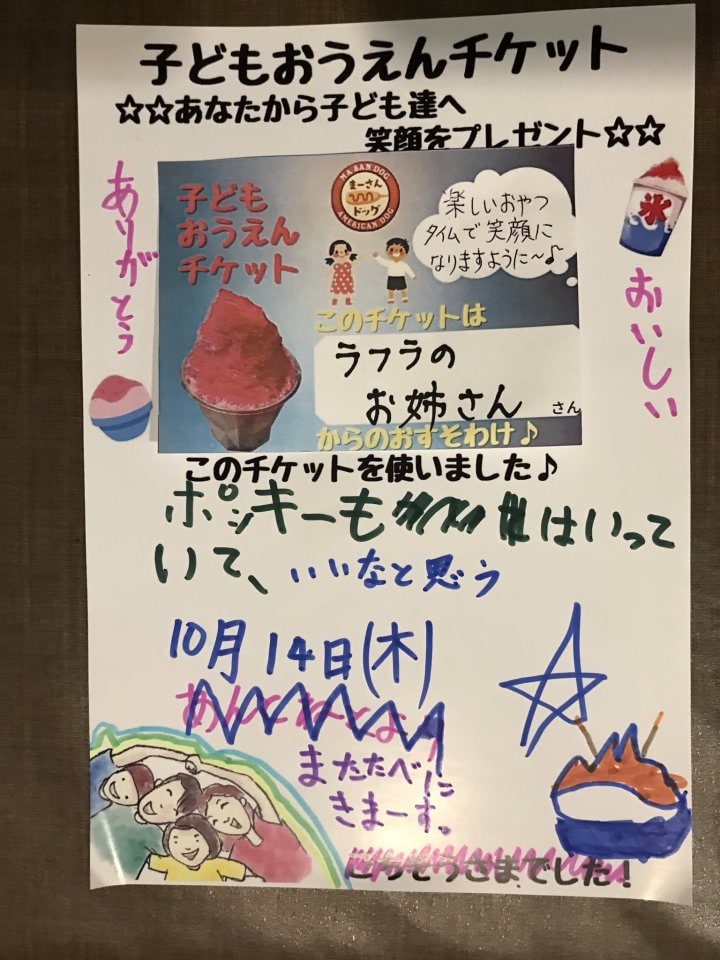 子どもおうえんチケット
☆☆あなたから子ども達へ
笑顔をプレゼント☆☆
ありがとう
子ども
おうえん
チケット
MA SAN DOG
まーさん
ドッグ
AMERICAN DOG
楽しいおやつ
タイムで笑顔に
なりますように〜♪
氷
おいしい
このチケットは
ラフラの
お姉さん さん
からのおすそわけ♪
このチケットを使いました♪
ポッキーも はいって
いて、いいなと思う
10月14日(木)
またたべに
きまーす。
ごちそうさまでした!